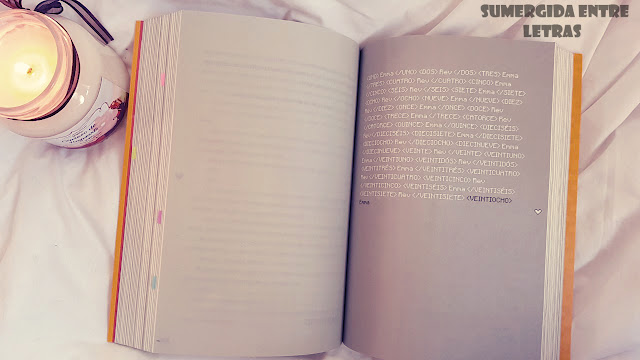 SUMERGIDA ENTRE
LETRAS
<UNO> Emma </UNO> <DOS> Rev </DOS> <TRES> Emma
</TRES> <CUATRO> Rev </CUATRO> <CINCO> Emma
</CINCO> <SEIS> Rev </SEIS> <SIETE> Emma </SIETE>
<OCHO> Rev </OCHO> <NUEVE> Emma </NUEVE> <DIEZ>
Rev </DIEZ> <ONCE> Emma </ONCE> <DOCE> Rev
</DOCE> <TRECE> Emma </TRECE> <CATORCE> Rev
</CATORCE> <QUINCE> Emma </QUINCE> <DIECISÉIS>
Rev </DIECISÉIS> <DIECISIETE> Emma </DIECISIETE>
<DIECIOCHO> Rev </DIECIOCHO> <DIECINUEVE> Emma
</DIECINUEVE> <VEINTE> Rev </VEINTE> <VEINTIUNO>
Emma </VEINTIUNO> <VEINTIDÓS> Rev </VEINTIDÓS>
<VEINTITRÉS> Emma </VEINTITRÉS> <VEINTICUATRO>
Rev </VEINTICUATRO> <VEINTICINCO> Rev
</VEINTICINCO> <VEINTISÉIS> Emma </VEINTISÉIS>
<VEINTISIETE> Rev </VEINTISIETE> <VEINTIOCHO>
Emma